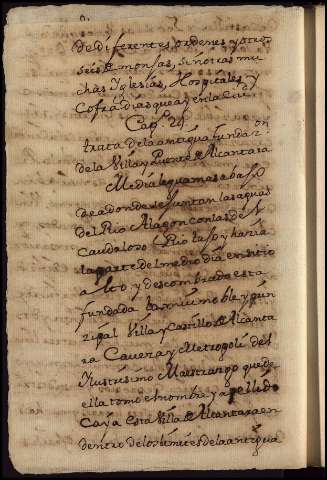 de diferentes ordenes y otro
seis de monjas, sin otras mu
chas Yglesias, Hospitales y
Cofradias que ay en la Ciud.
Cap. 2
trata de la antigua fundaz.on
de la Villa y Puente de Alcantara
Media legua mas abaxo
de adonde se juntan las aguas
del Rio Alagon con las del
Caudaloso Rio taxo y hazia
la parte del medio dia en sitio
alto y descombrado esta
fundada la muy noble y prin
zipal Villa y Castillo de Alcanta
ra Caveza y Metropoli del
Ylustrisimo Maestrazgo que de
ella tomo el nombre y apellido
Caya esta Villa de Alcantara en
dentro de los limites de la antigua